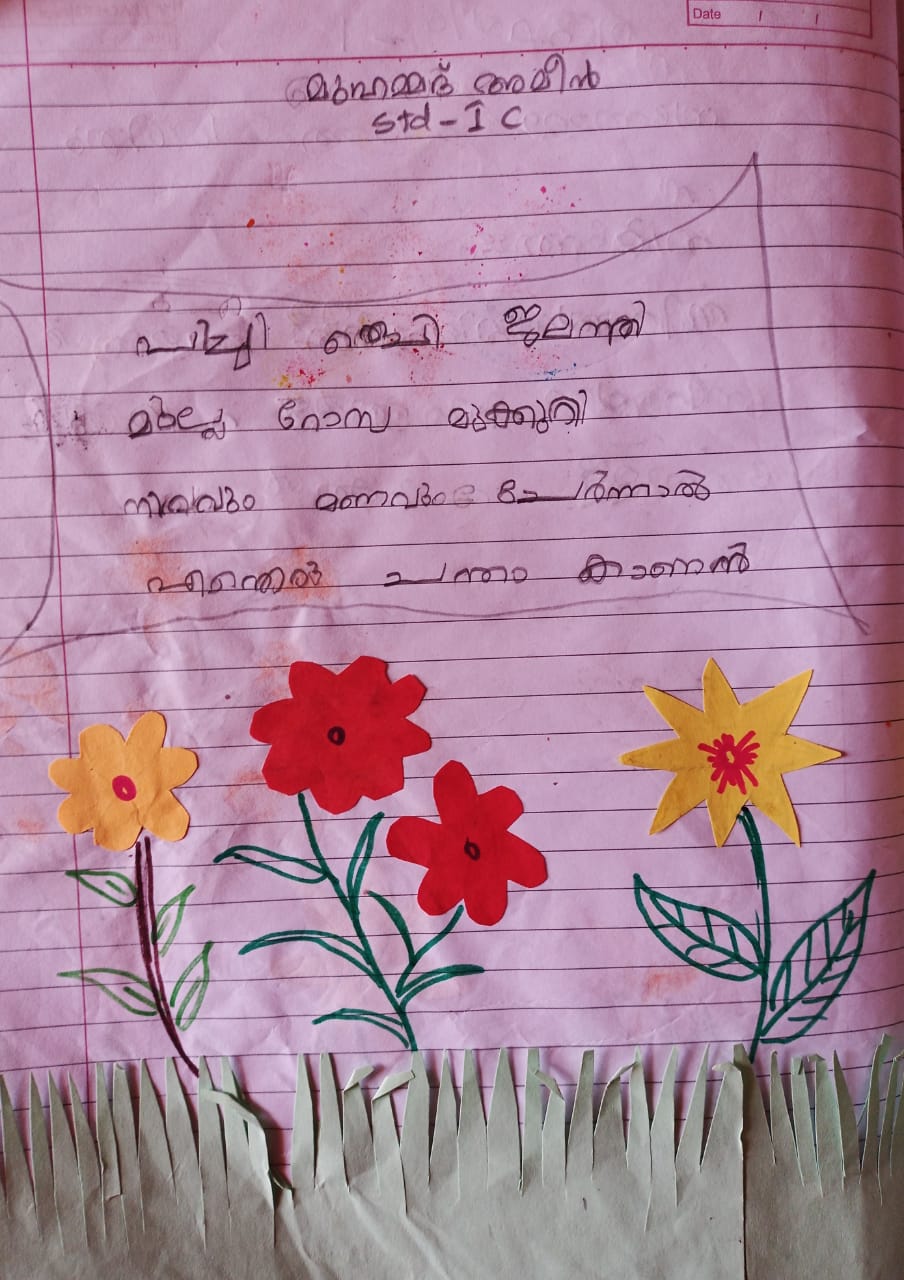 Date / /
മുഹമ്മദ് അമീൻ
Std - I C
പിച്ചി തെച്ചി ഇലഞ്ഞി
മുല്ല റോസ മുക്കുറ്റി
നിറവും മണവും ചേർന്നാൽ
എന്തൊരു ചന്തം കാണാൻ